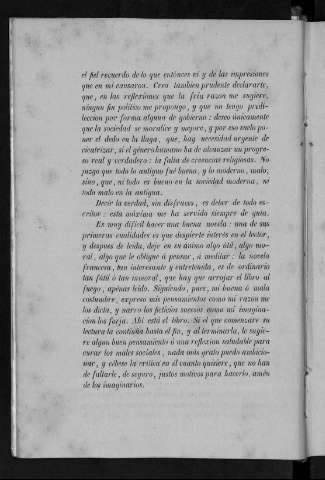 el fiel recuerdo de lo que entónces vi y de las impresiones
que en mi causaron. Creo tambien prudente declararte,
que, en las reflexiones que la fria razon me sugiere,
ningun fin político me propongo, y que no tengo predi-
leccion por forma alguna de gobierno: deseo únicamente
que la sociedad se moralice y mejore, y por eso suelo po-
ner el dedo en la llaga, que, hay necesidad urgente de
cicatrizar, si el género humano ha de alcanzar un progre-
so real y verdadero: la falta de creencias religiosas. No
juzgo que todo lo antiguo fué bueno, y lo moderno, malo;
sino, que, ni todo es bueno en la sociedad moderna, ni
todo malo en la antigua.
Decir la verdad, sin disfraces, es deber de todo es-
critor: esta máxima me ha servido siempre de guia.
Es muy difícil hacer una buena novela: una de sus
primeras cualidades es que despierte interés en el lector,
y despues de leida, deje en su ánimo algo útil, algo mo-
ral, algo que le obligue á pensar, á meditar: la novela
francesa, tan interesante y entretenida, es de ordinario
tan fútil ó tan inmoral, que hay que arrojar el libro al
fuego, apénas leido. Siguiendo, pues, mi buena ó mala
costumbre, expreso mis pensamientos como mi razon me
los dicta, y narro los ficticios sucesos como mi imagina-
cion los forja. Ahí está el libro. Si el que comenzare su
lectura la continúa hasta el fin, y al terminarla, le sugie-
re algun buen pensamiento ó una reflexion saludable para
curar los males sociales, nada más grato puedo ambicio-
nar, y cébese la crítica en él cuanto quisiere, que no han
de faltarle, de seguro, justos motivos para hacerlo, amén
de los imaginarios.